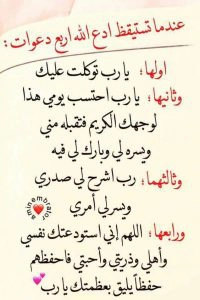 عندما تستيقظ ادع الله اربع دعوات:
اولها؛ يا رب توكلت عليك
وثانيها؛ يا رب احتسب يومي هذا
لوجهك الكريم فتقبله مني
ويسره لي وبارك لي فيه
وثالثهما؛ رب اشرح لي صدري
ويسر لي أمري
ورابعها؛ اللهم إني استودعتك نفسي
وأهلي وذريتي وأحبتي فاحفظهم
حفظاً يليق بعظمتك يا رب